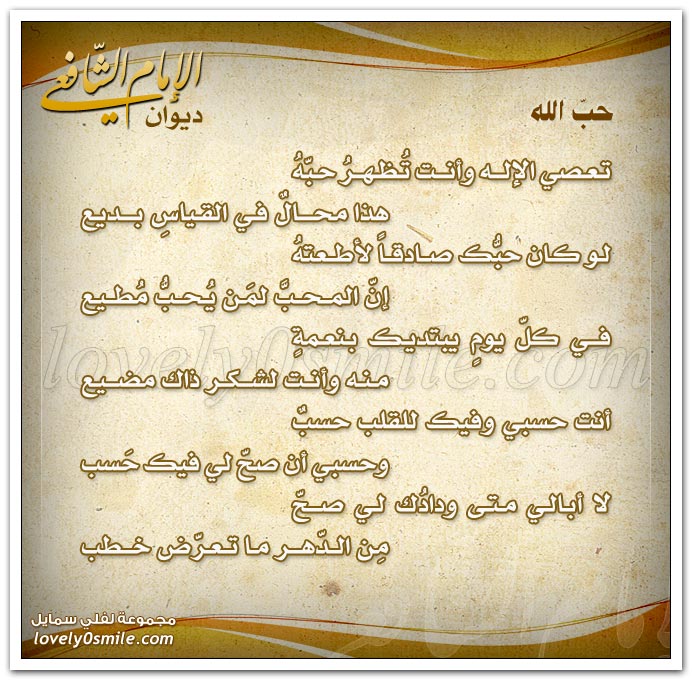 الإمام الشّافعي
ديوان
حبّ الله
تعصي الإله وأنت تُظهرُ حبّهُ
هذا محالٌ في القياسِ بديع
لو كان حبُّك صادقاً لأطعتهُ
إنّ المحبَّ لمَن يُحبُّ مُطيع
في كلّ يومٍ يبتديك بنعمةٍ
منه وأنت لشكر ذاك مضيع
أنت حسبي وفيك للقلب حسبٌ
وحسبي أن صحّ لي فيك حَسب
لا أبالي متى ودادُك لي صحّ
مِن الدّهر ما تعرّض خطب
lovely0smile.com
مجموعة لفلي سمايل
lovely0smile.com